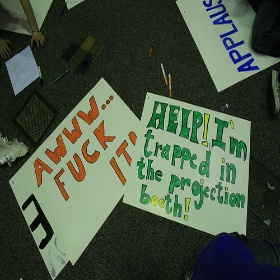 APPLAUS
AWWW...
FUCK
IT!
HELP! I'm
trapped in
the projection
booth!